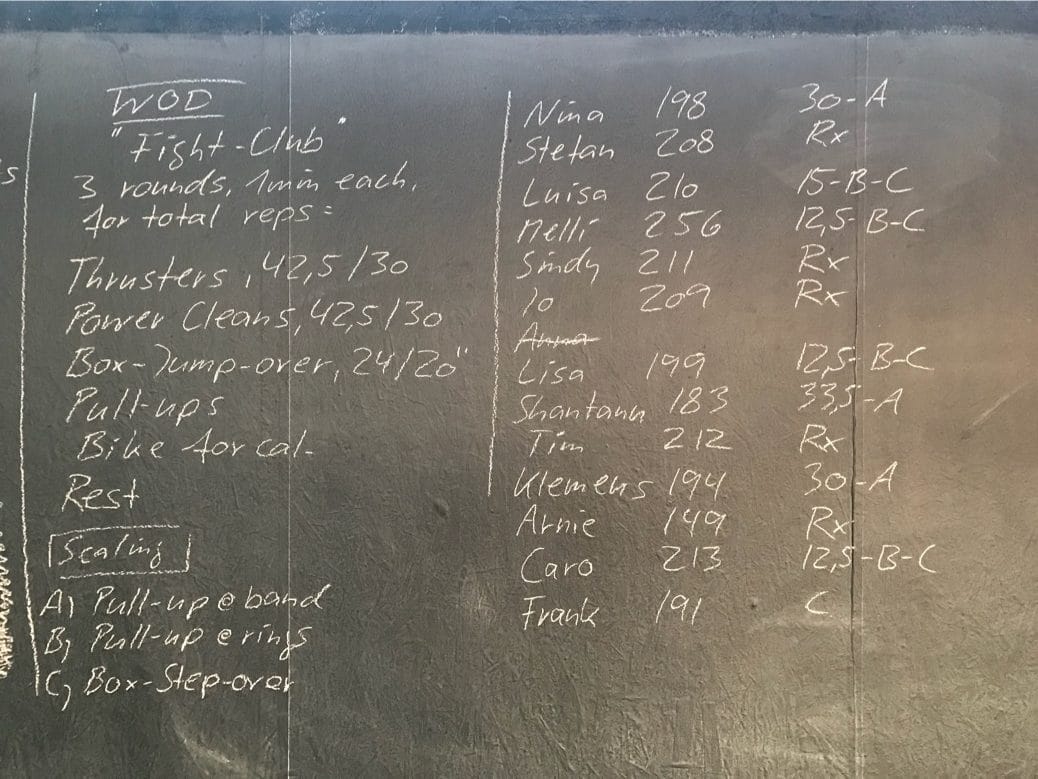 WOD
"Fight-Club"
3 rounds, 1min each,
for total reps:
Thrusters, 42,5/30
Power Cleans, 42,5/30
Box-Jump-over, 24/20"
Pull-ups
Bike for cal.
Rest
Scaling
A) Pull-up @ band
B) Pull-up @ rings
C) Box-Step-over
Nina 198 30-A
Stefan 208 Rx
Luisa 210 15-B-C
Melli 256 12,5-B-C
Sindy 211 Rx
Jo 209 Rx
Anna
Lisa 199 12,5-B-C
Shantann 183 33,5-A
Tim 212 Rx
Klemens 194 30-A
Arnie 149 Rx
Caro 213 12,5-B-C
Frank 191 C